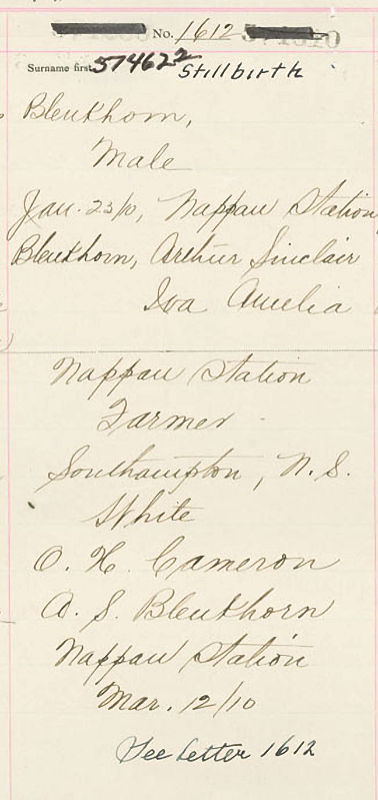 No. 1612
Surname first 574622 Stillbirth
Blenkhorn,
Male
Jan. 23/10, Nappan Station
Blenkhorn, Arthur Sinclair
Iva Amelia
Nappan Station
Farmer
Southampton, N.S.
White
O. H. Cameron
A. S. Blenkhorn
Nappan Station
Mar. 12/10
See Letter 1612